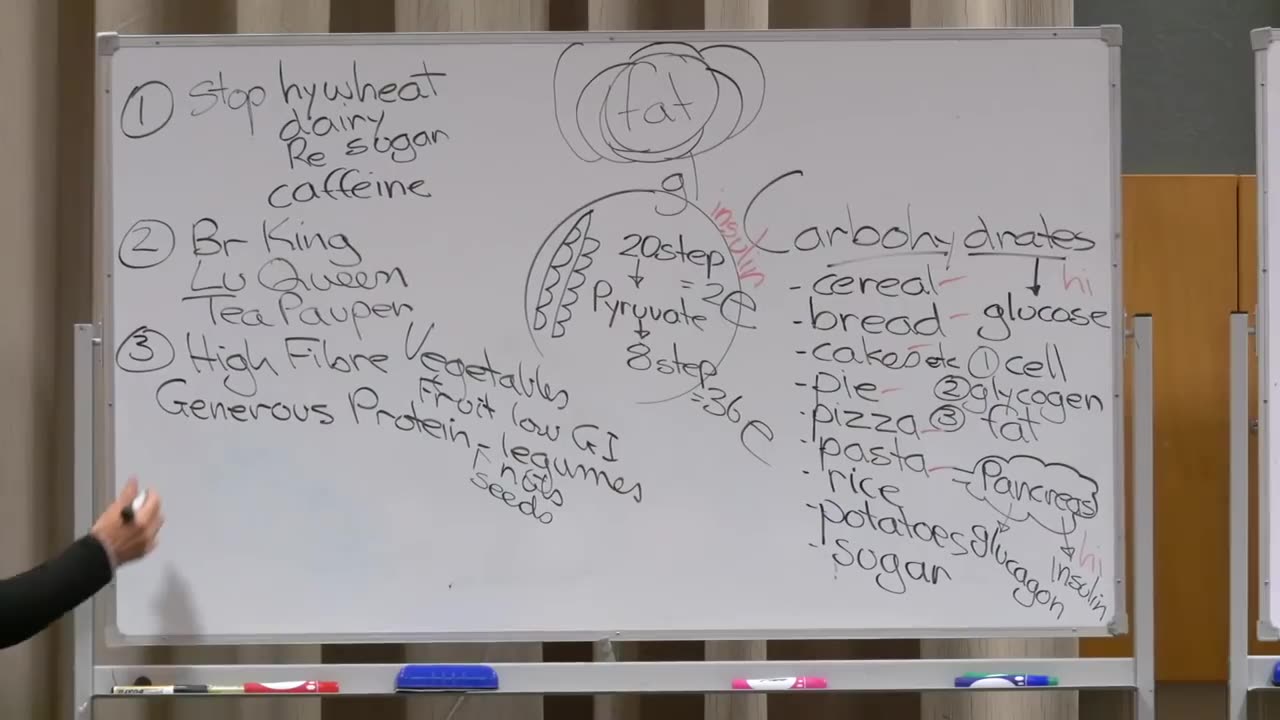 ① Stop hywheat
dairy
Re sugar
caffeine
② Br King
Lu Queen
Tea Pauper
③ High Fibre Vegetables
Fruit low GI
Generous Protein - legumes
nuts
seeds
fat
g
insulin
20step
= 2e
Pyruvate
8step
= 36e
Carbohydrates
- cereal -
- bread -
- cakes etc
- pie -
- pizza -
- pasta -
- rice
- potatoes
- sugar
hi
glucose
① cell
② glycogen
③ fat
Pancreas
glucagon
hi
insulin